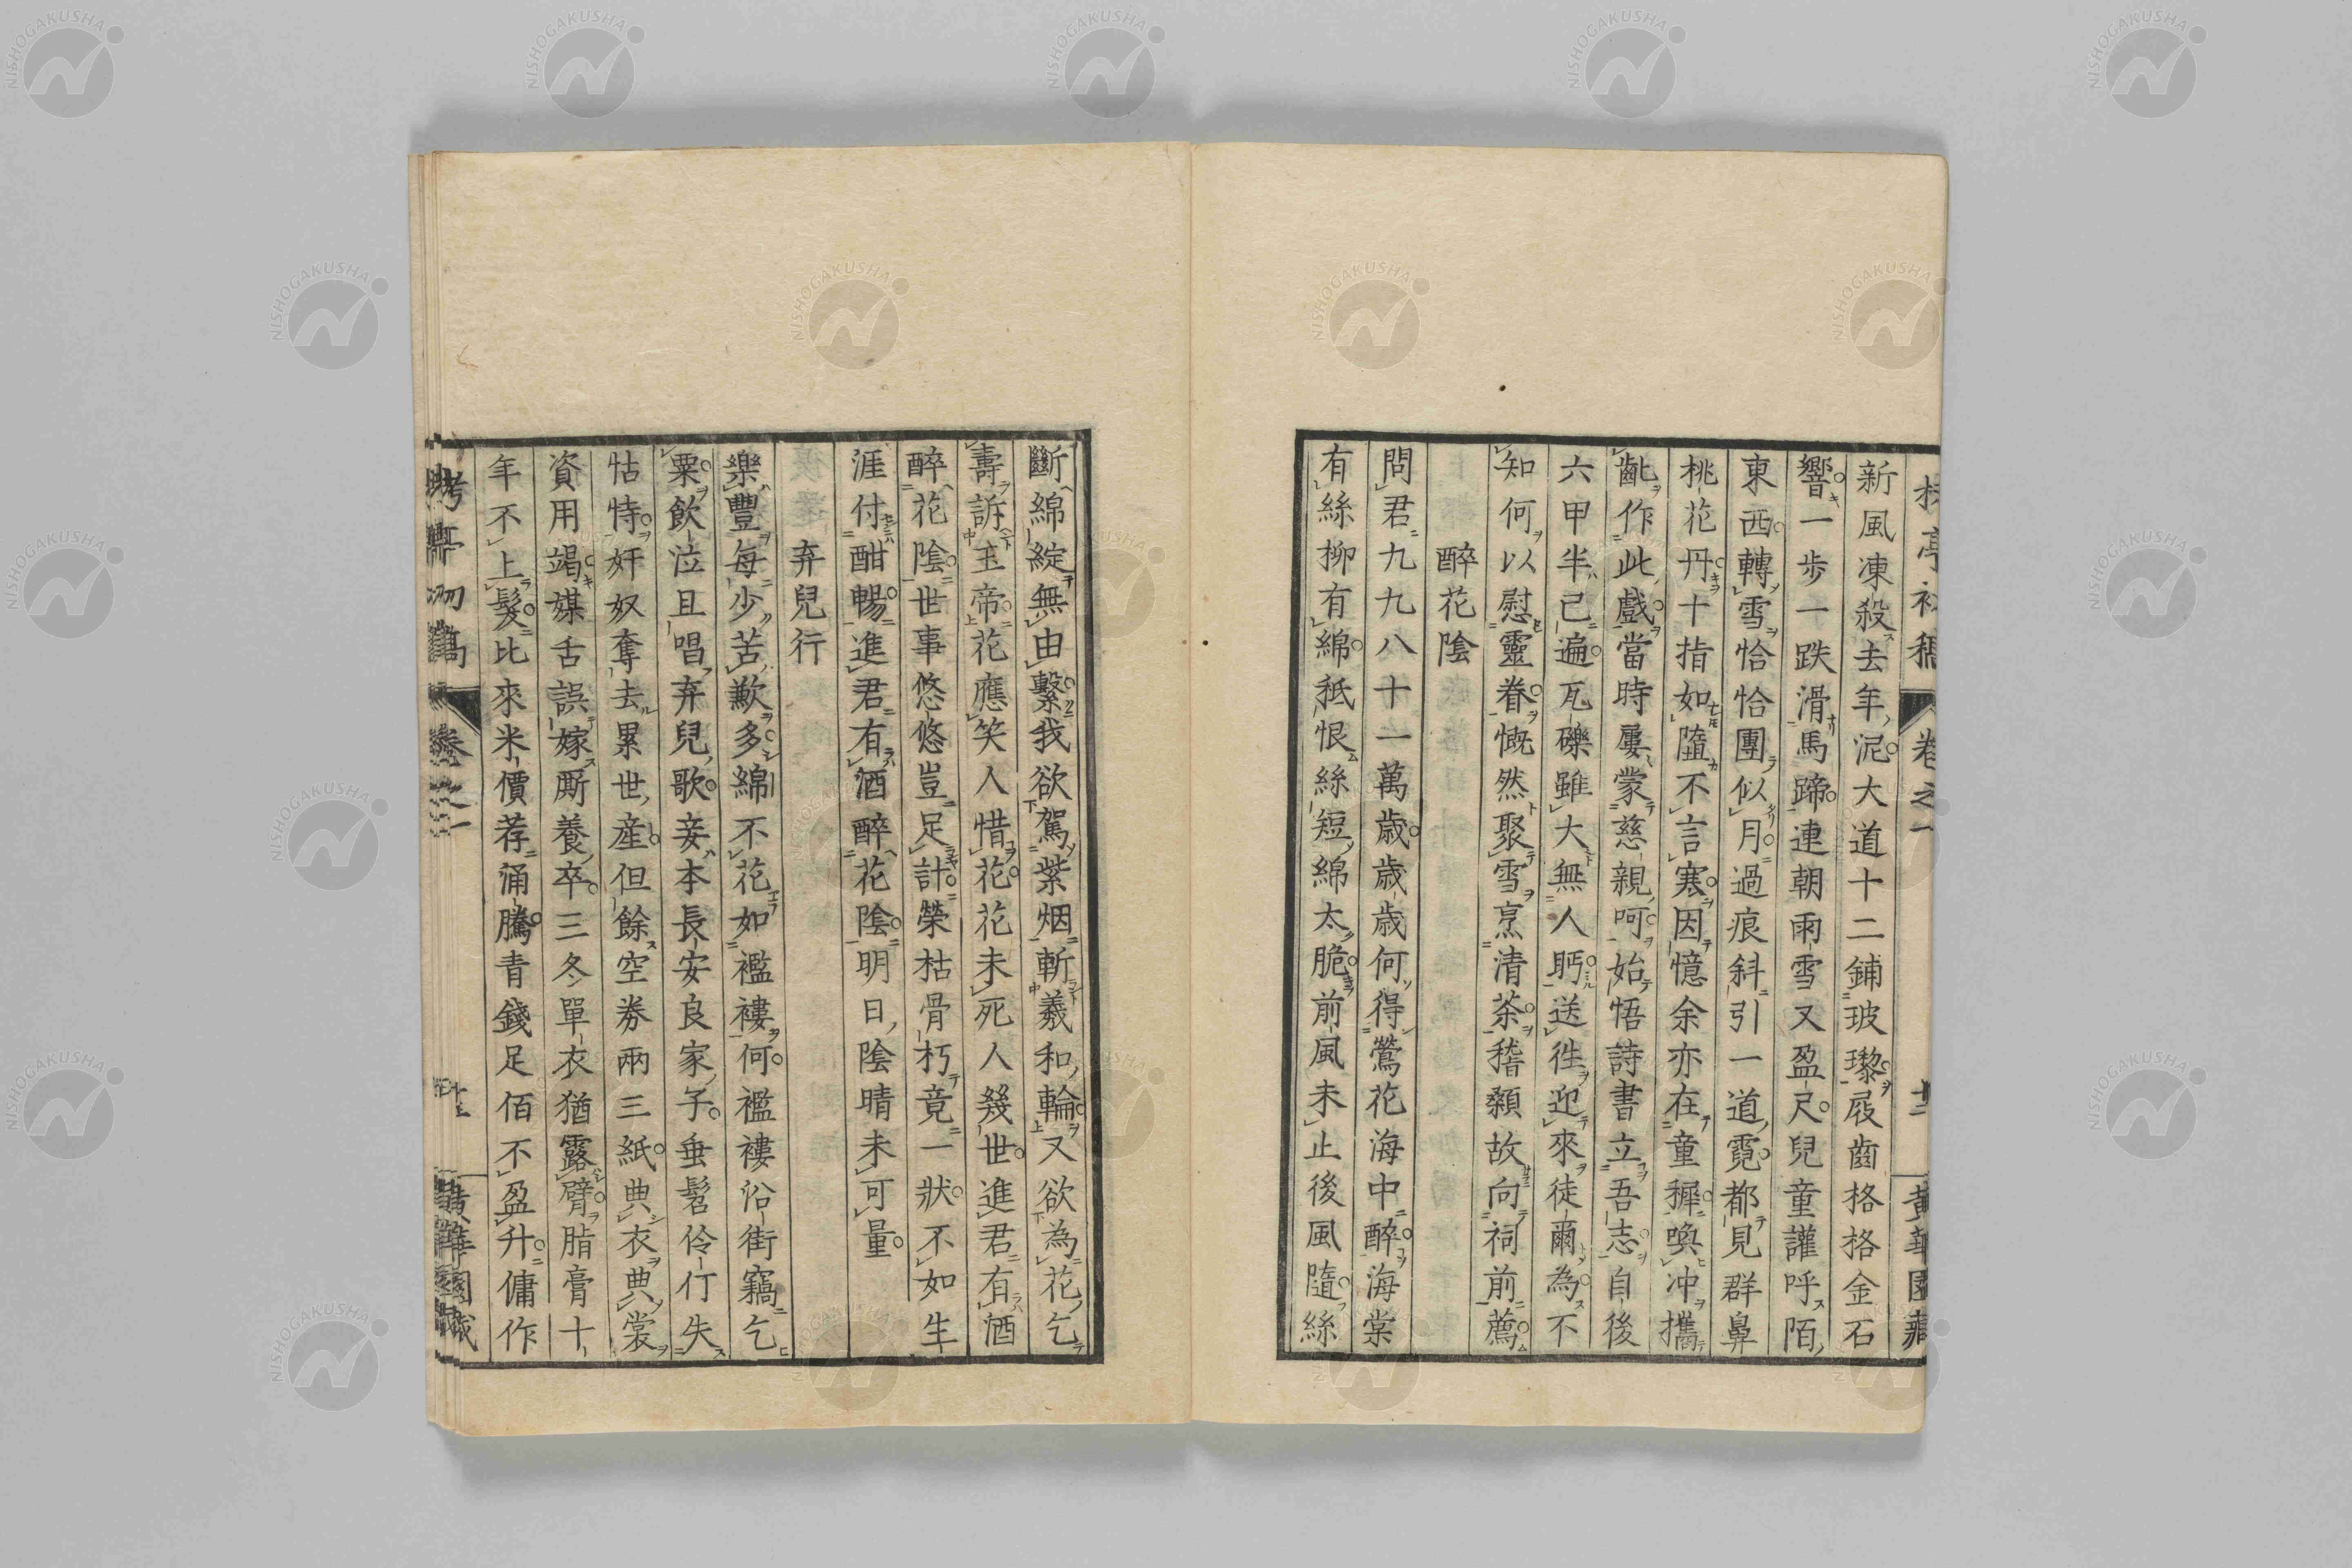 新風凍殺去年泥大道十二鋪玻瓈屐齒格格金石
響一步一跌滑馬蹄連朝雨雪又盈尺兒童讙呼陌
東西轉雪恰恰團似月過痕斜引一道霓都見群鼻
桃花丹十指如墮不言寒因憶余亦在童穉喚冲攜
齔作此戲當時屢蒙慈親呵始悟詩書立吾志自後
六甲半已遍瓦礫雖大無人眄送徃迎來徒爾為不
知何以慰靈眷慨然聚雪烹清茶稽顙故向祠前薦
醉花陰
問君九九八十一萬歲歲歲何得鶯花海中醉海棠
有絲柳有綿秪恨絲短綿太脆前風未止後風隨絲
斷綿綻無由繫我欲駕紫烟斬羲和輪又欲為花乞
壽訴主帝花應笑人惜花花未死人幾世進君有酒
醉花陰世事悠悠豈足計榮枯骨朽竟一狀不如生
涯付酣暢進君有酒醉花陰明日陰晴未可量
弃兒行
樂豐每少苦歉多綿不花如襤褸何襤褸沿街竊乞
粟飲泣且唱弃兒歌妾本長安良家子垂髫伶仃失
怙恃奸奴奪去累世產但餘空券兩三紙典衣典裳
資用竭媒舌誤嫁厮養卒三冬單衣猶露臂脂膏十
年不上髮比來米價荐涌騰青錢足佰不盈升傭作
卷之一
NISHOGAKUSHA